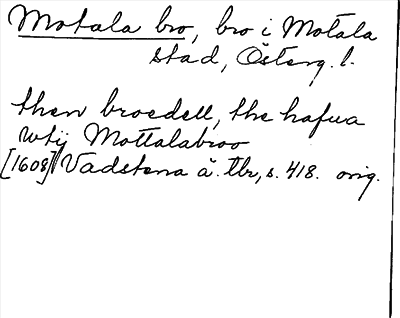 Motala bro, bro i Motala
stad, Österg. l.
then broedell, the hafua
wtij Mottalabroo
[1608] Vadstena ä. tbr, s. 418. orig.